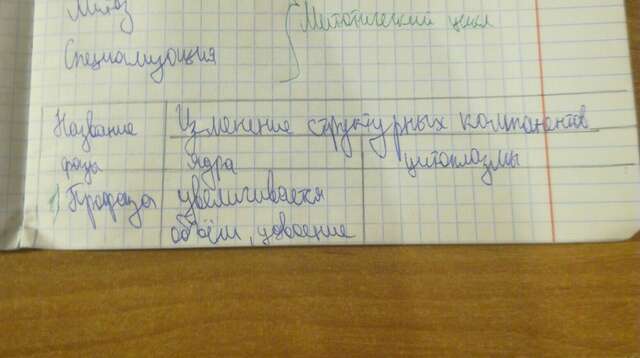 Митоз
Митотический цикл
Специализация
Название
Изменение структурных компонентов
фазы
ядра
цитоплазмы
1) Профаза
увеличивается
объём, удвоение